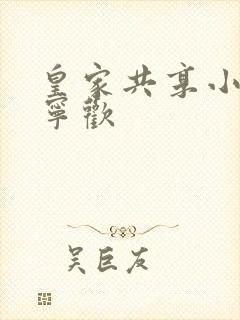 皇家共享小
寧歡
吴巨友